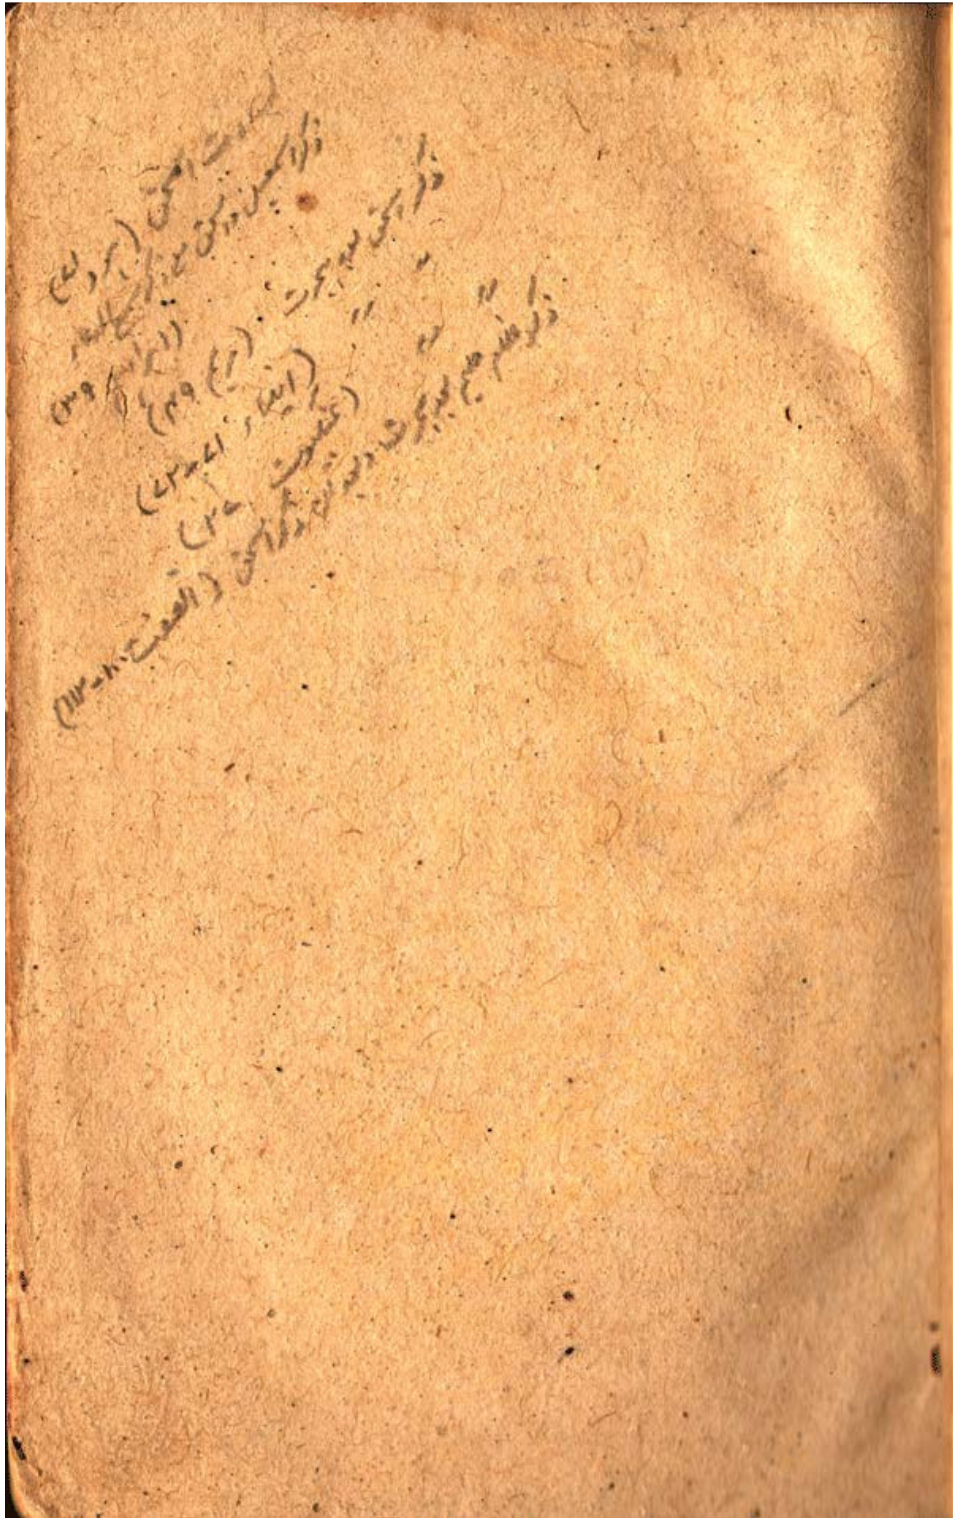 بشارت اسحٰق (ہود ۷۱)
ذکر اسمٰعیل و اسحٰق
(ابراہیم ۳۹)
ذکر اسحٰق بعد ہجرت (مریم ۴۹)
〃 〃 (انبیاء ۷۱-۷۲)
〃 〃 (عنکبوت ۲۷)
ذکر غلام حلیم بعد ہجرت و بعد ازاں ذکر اسحٰق (الصفت ۱۰۰-۱۱۲)